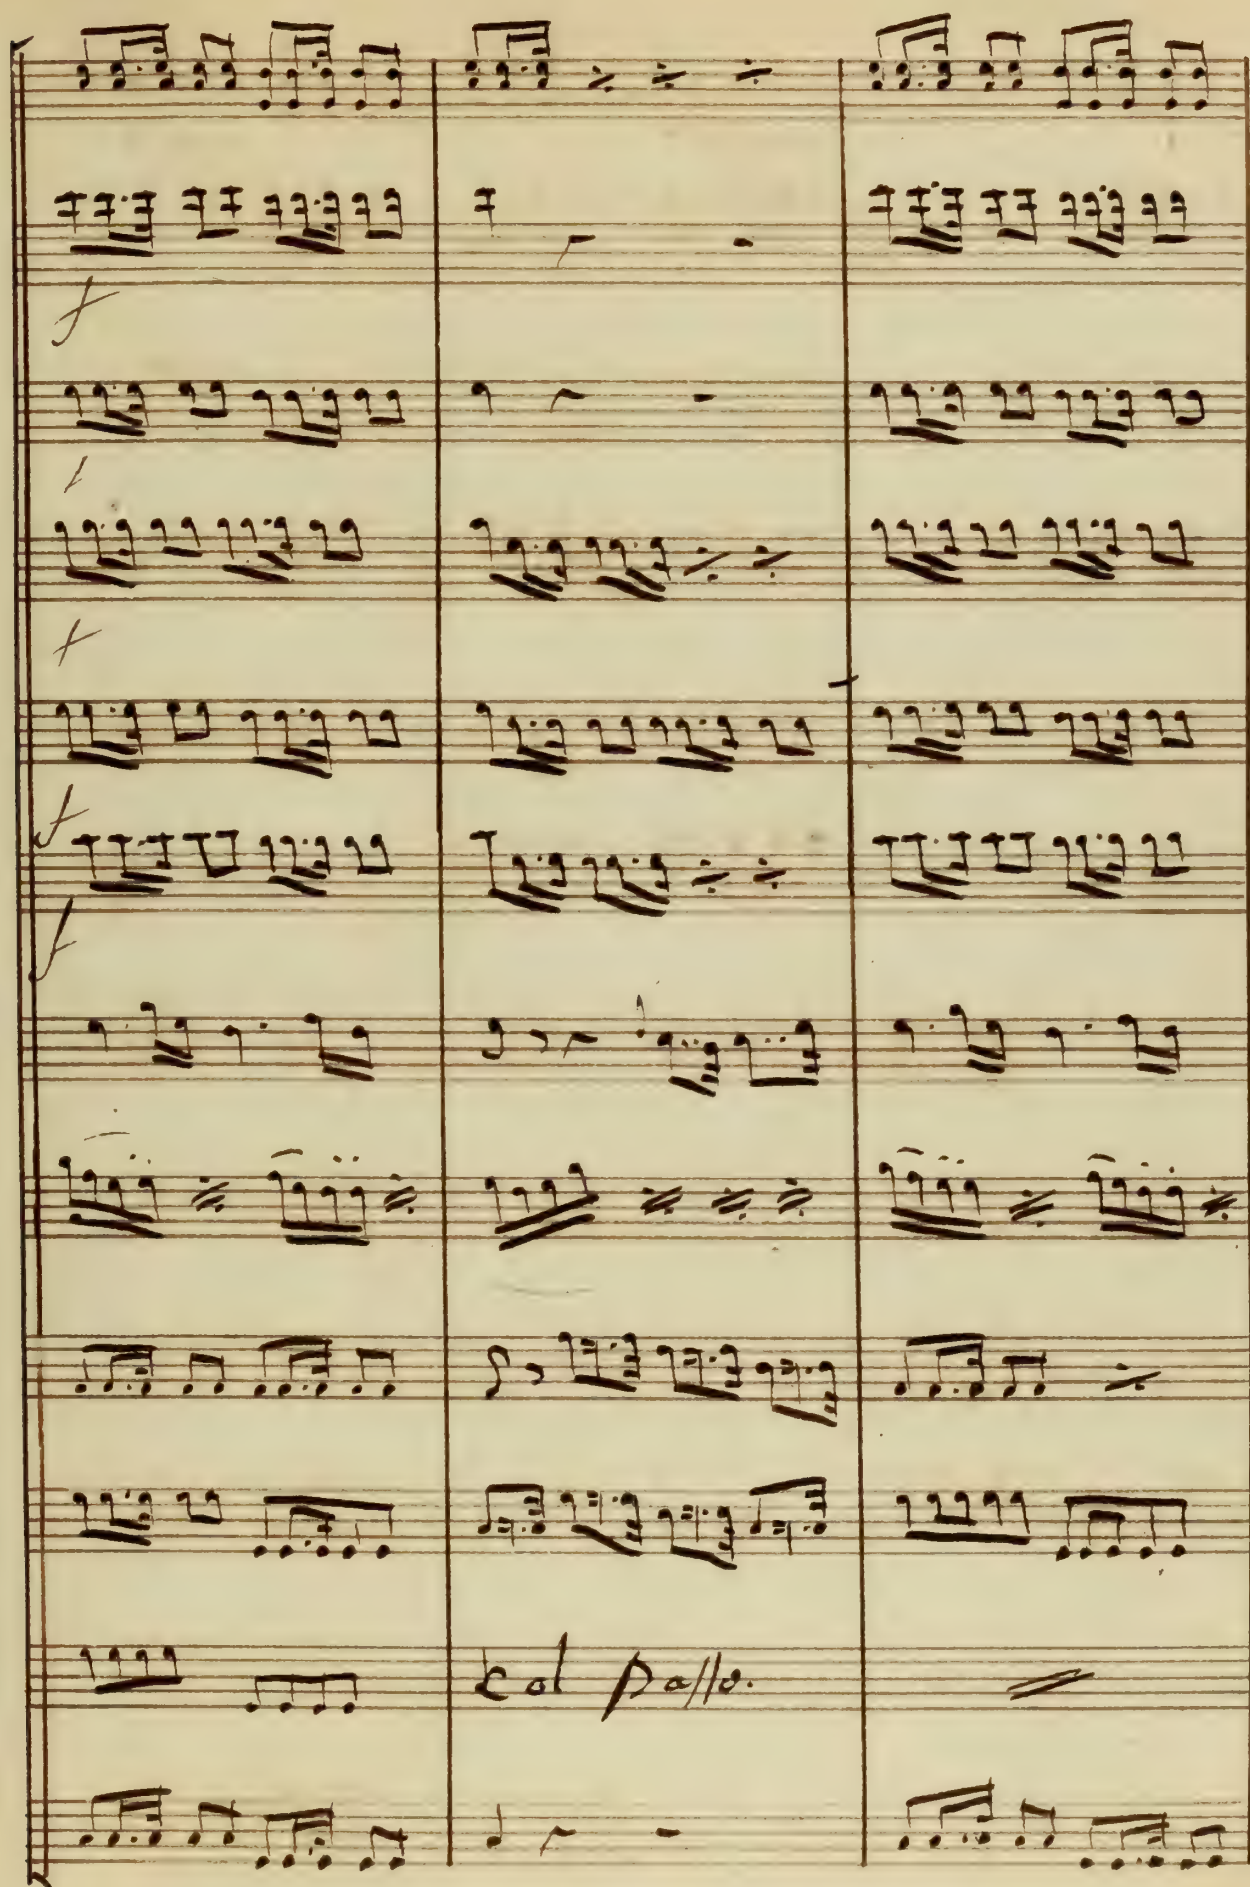 f
f
f
f
Col Basso.